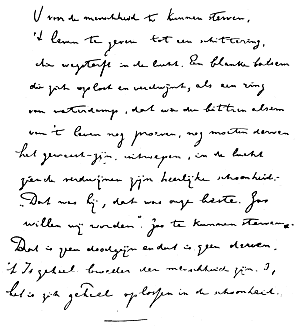 U voor de menschheid te kunnen sterven,
't leven te geven tot een schittering,
die wegsterft in de lucht. Een blanke balsem
die zich oplost en verdwijnt, als een ring
van waterdamp, dat wie den bittren alsem
van 't leven nog proeven, nog moeten derven
het geweest-zijn, uitroepen, in de lucht
ziende verdwijnen zijn heerlijke schoonheid:
"Dat was hij, dat was onze beste. Zoo
willen wij worden". Zoo te kunnen sterven
Dat is geen doodzijn en dat is geen derven.
't Is geheel der menschheid zijn.
het is zich geheel oplossen in de schoonheid.